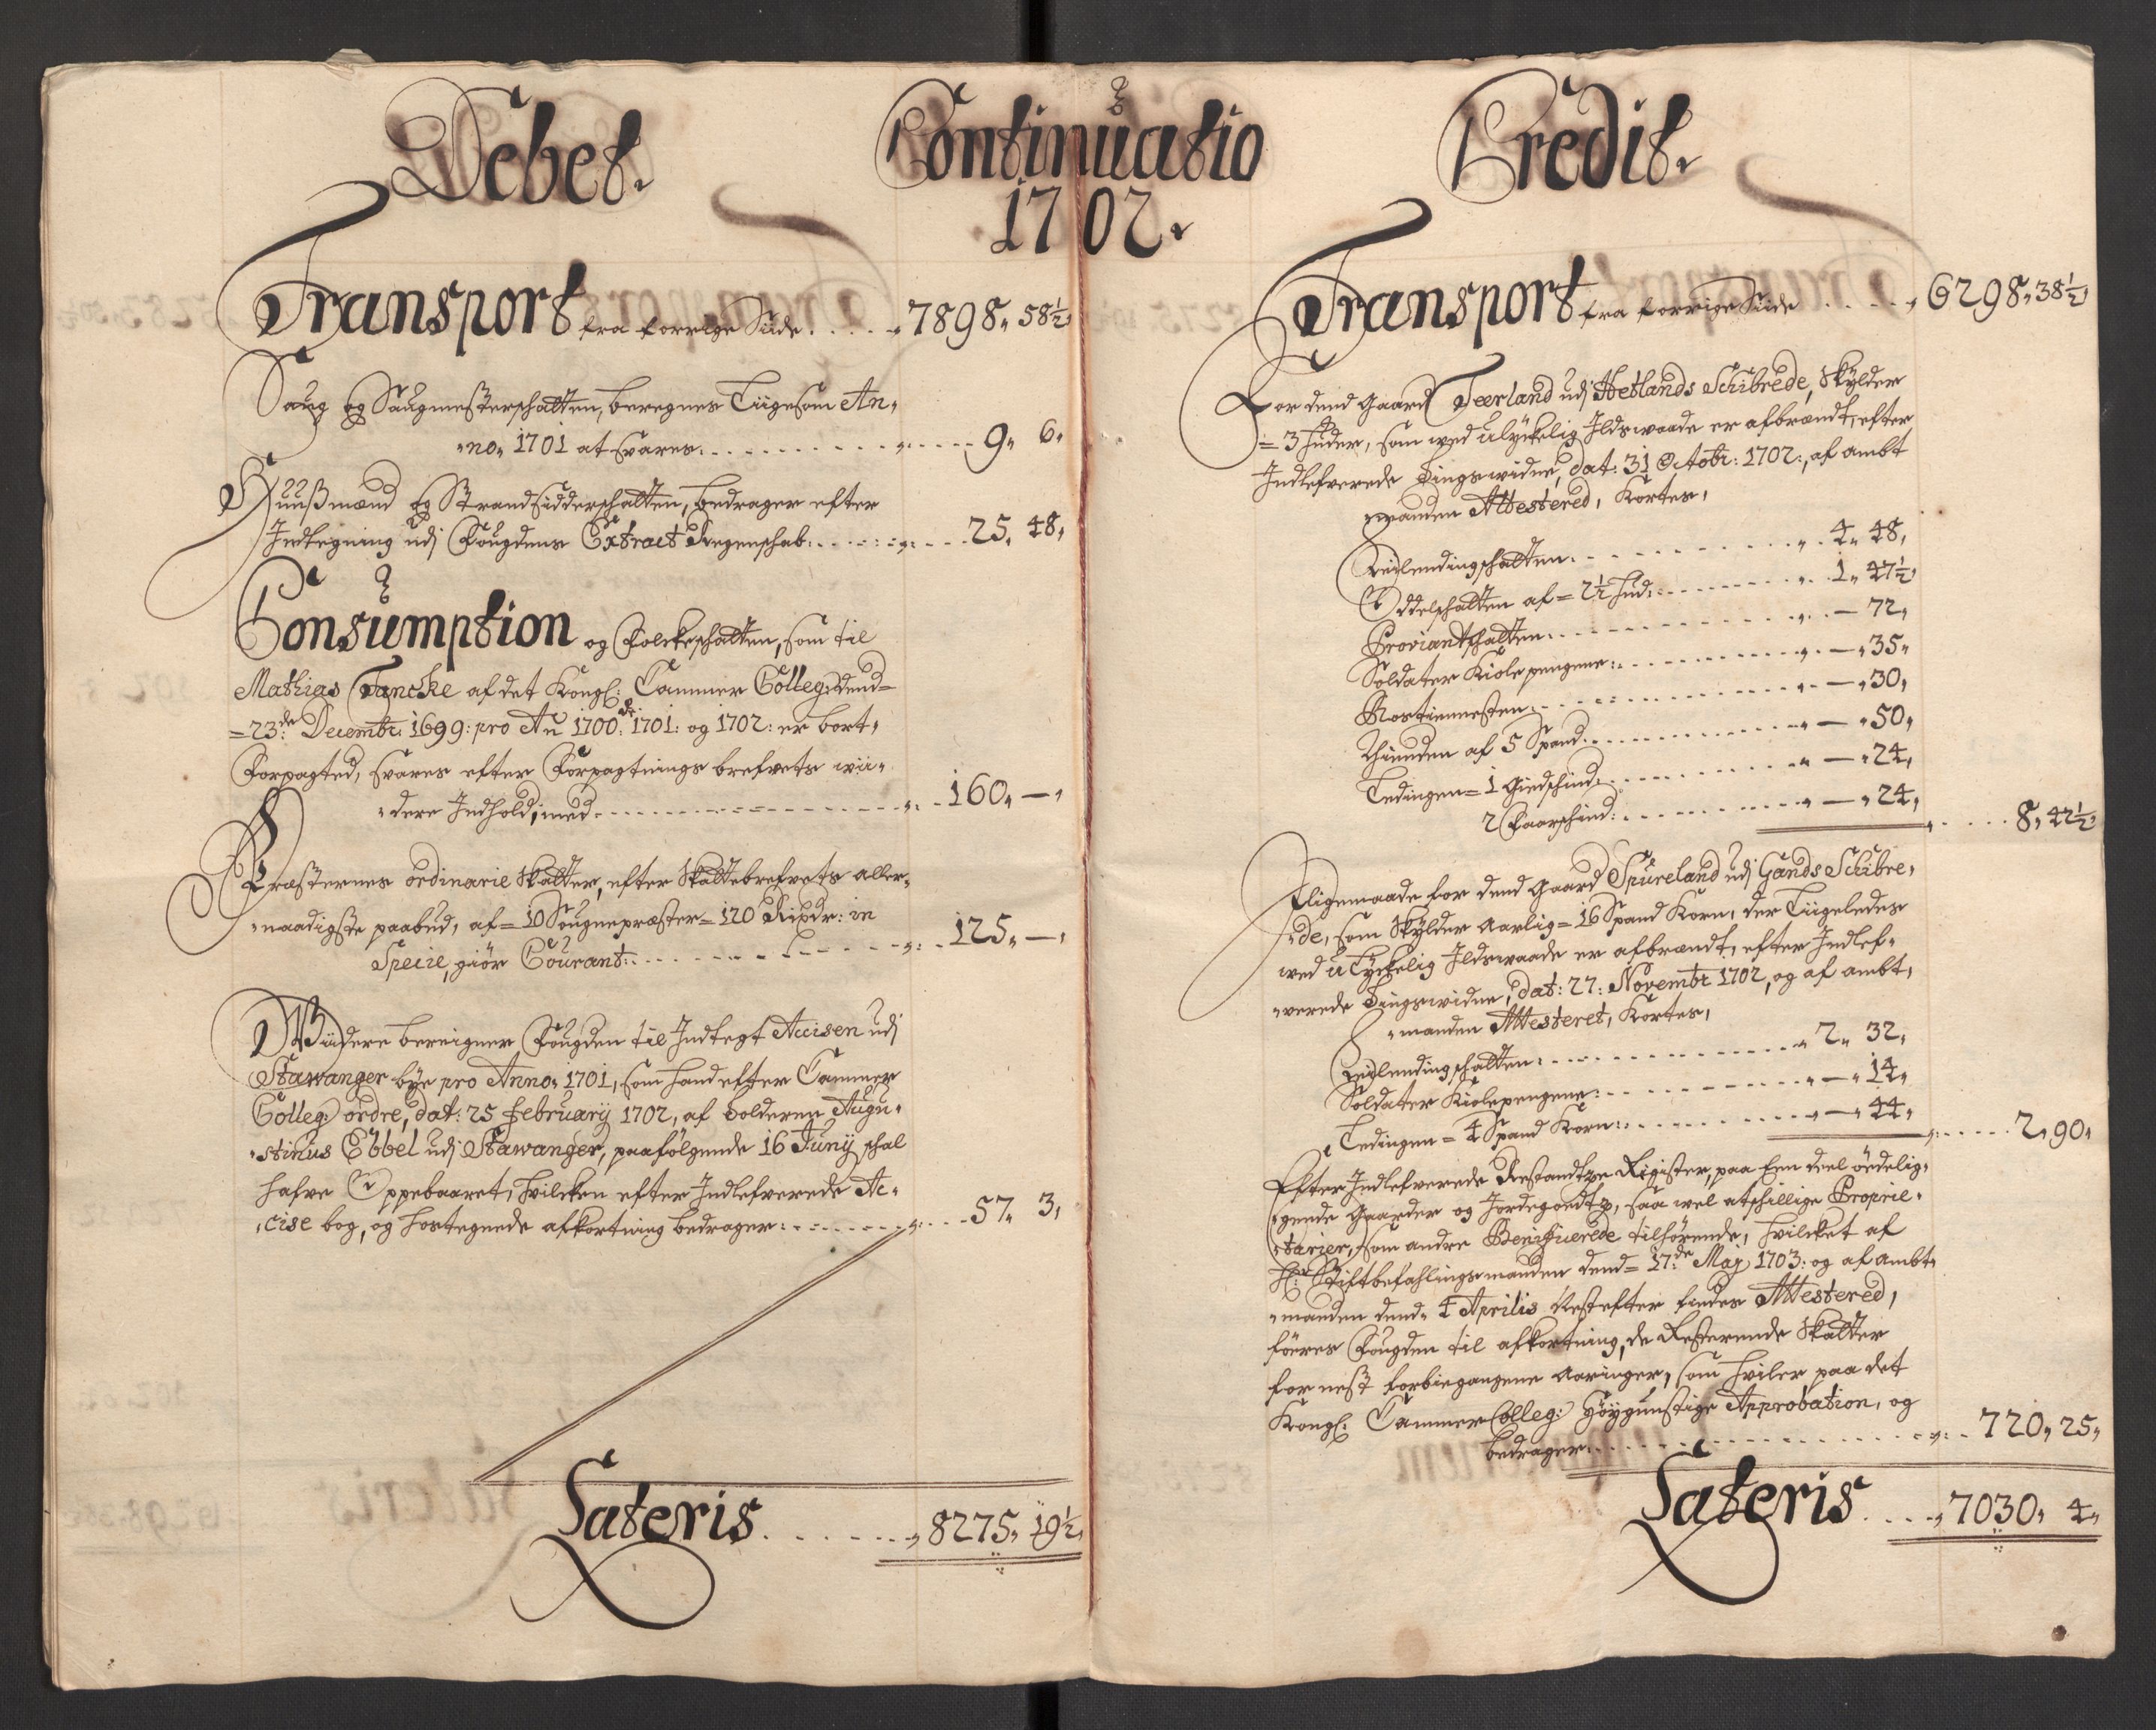 Debet.
Continuatio
1702.
Transport fra forrige Side ..... 7898, 58½,
Saug og Saugmesterschatten, beregnes Liigesom An-
no 1701 at svares ..... 9, 6,
Huusmænd og Strandsidderschatten, bedrager efter
Indtegning udj Fougdens Extract Regenschab ..... 25, 48,
Consumption og Folckeschatten, som til
Mathias Tancke af det Kongl: Cammer Colleg: dend
23de Decembr: 1699: pro An 1700: 1701: og 1702: er bort-
Forpagted, svares efter Forpagtnings brefvets vii-
dere Indhold, med ..... 160, —,
Præsternes ordinarie Skatter, efter Skattebrefvets aller-
naadigste paabud, af 10 Sougnepræster 120 Rixdr: in
Specie, giör Courant ..... 125, —,
Viidere bereigner Fougden til Indtegt Accisen udj
Stawanger bye pro Anno 1701, som hand efter Cammer
Colleg: ordre, dat: 25 February 1702, af Tolderen Augu-
stinus Ebbel udj Stawanger, paafølgende 16 Juny schal
hafve Oppebaaret, hvilcken efter Indlefverede Ac-
cise bog, og hostegnede afkortning bedrager ..... 57, 3,
Lateris ..... 8275, 19½,
Credit.
Transport fra forrige Siide ..... 6298, 38½,
For dend Gaard Teerland udj Hetlands Schibrede, Skylder
3 Huder, som ved ulyckelig Ildswaade er afbrændt, efter
Indlefverede Tingswidne, dat: 31 Octobr: 1702:, af ambt
manden Attestered, Kortes,
Leilendingschatten ..... 4, 48,
Odelschatten af 2½ Hud: ..... 1, 47½
Proviantschatten ..... — 72,
Soldater Kiole pengene ..... — 35,
Rostienesten ..... — 30,
Thienden af 5 Spand ..... — 50,
Tedingen 1 Giedschind ..... — 24,
2 Faarschind ..... — 24, ..... 8, 42½
Iligemaade for dend Gaard Spureland udj Gands Schibre-
de, som Skylder Aarlig 16 Spand Korn, der Liigeledes
ved ulyckelig Ildswaade er afbrændt, efter Indlef-
verede Tingswidne, dat: 27: Novembr 1702, og af ambt,
manden Attesteret, Kortes,
Leilendingschatten ..... 2, 32,
Soldater Kiolepengene ..... — 14,
Tedingen 4 Spand Korn ..... — 44, ..... 2, 90,
Efter Indlefverede Restandtze Register, paa Een deel ödelig-
gende Gaarder og Jordegodtz, saa vel atschillige Proprie-
tarier, som andre Benificerede tilhörende, hvilcket af
Hr: Stiftbefahlingsmanden dend 17de Maj 1703: og af ambt-
manden dend 4 Aprilis Nest efter findes Attestered,
föeres Fougden til afkortning, de Resterende Skatter
for nest forbiegangene Aaringer, som hviler paa det
Kongl: Cammer Colleg: Höygunstige Approbation, og
bedrager ..... 720, 25,
Lateris ..... 7030, 4,